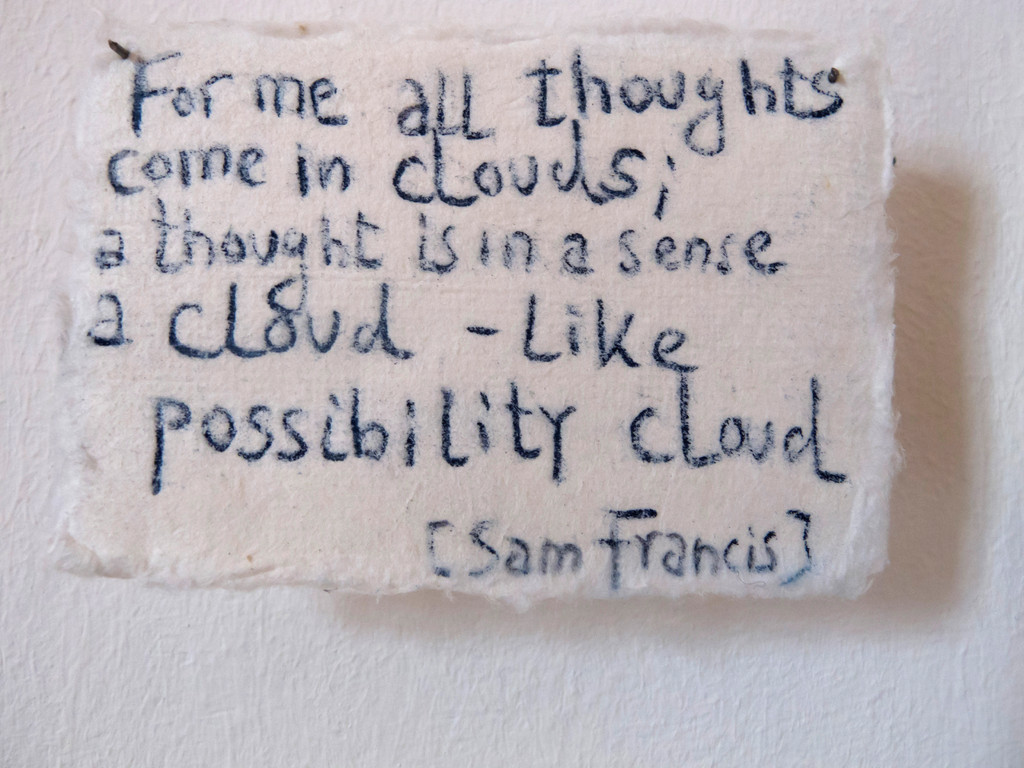 For me all thoughts
come in clouds;
a thought is in a sense
a cloud - like
possibility cloud
[Sam Francis]